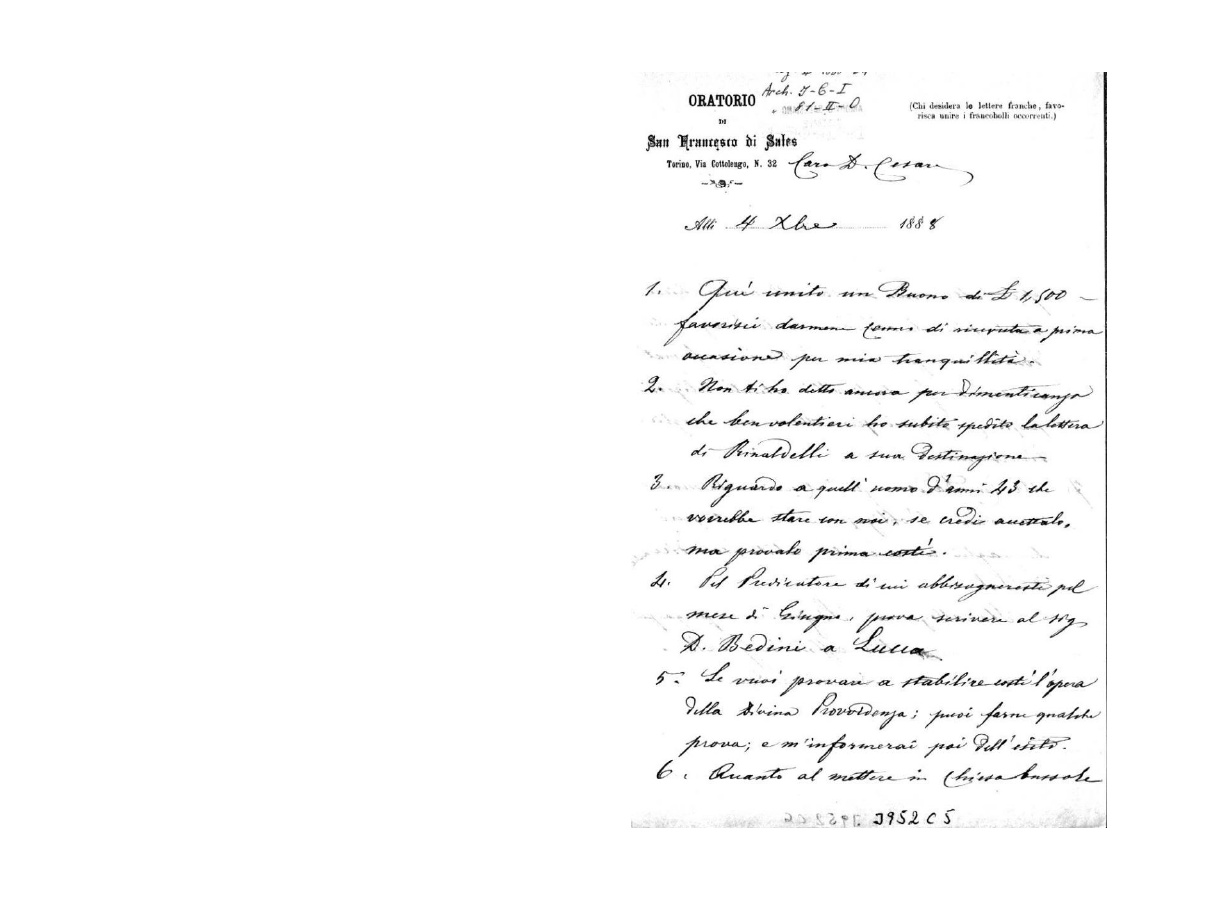 Arch. J-6-I
81-II-0
ORATORIO
DI
San Francesco di Sales
Torino, Via Cottolengo, N. 32
(Chi desidera le lettere franche, favo-
risca unire i francobolli occorrenti.)
Caro D. Cesare
Alli 4 Xbre 1888
1. Qui unito un Buono di £ 1,500 –
favorisci darmene cenno di ricevuta a prima
occasione per mia tranquillità.
2. Non ti ho detto ancora per dimenticanza
che ben volentieri ho subito spedito la lettera
di Rinaldelli a sua destinazione –
3. Riguardo a quell' uomo d'anni 43 che
vorrebbe stare con noi, se credi accettalo,
ma provalo prima costì.
4. Pel Predicatore di cui abbisognereste pel
mese di Giugno, prova scrivere al sig
D. Bedini a Lucca
5. Se vuoi provare a stabilire costì l'opera
della Divina Provvidenza; puoi farne qualche
prova; e m'informerai poi dell' esito.
6. Quanto al mettere in Chiesa bussole
J952 C 5